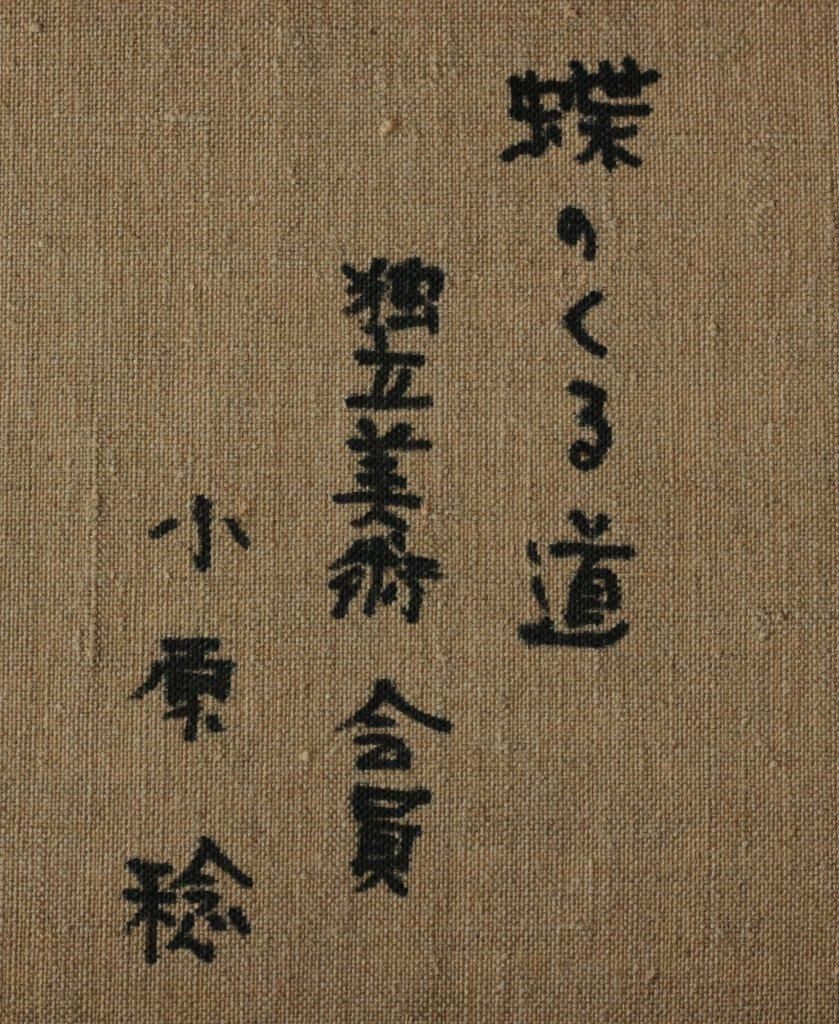 蝶のくる道
独立美術会員
小原稔